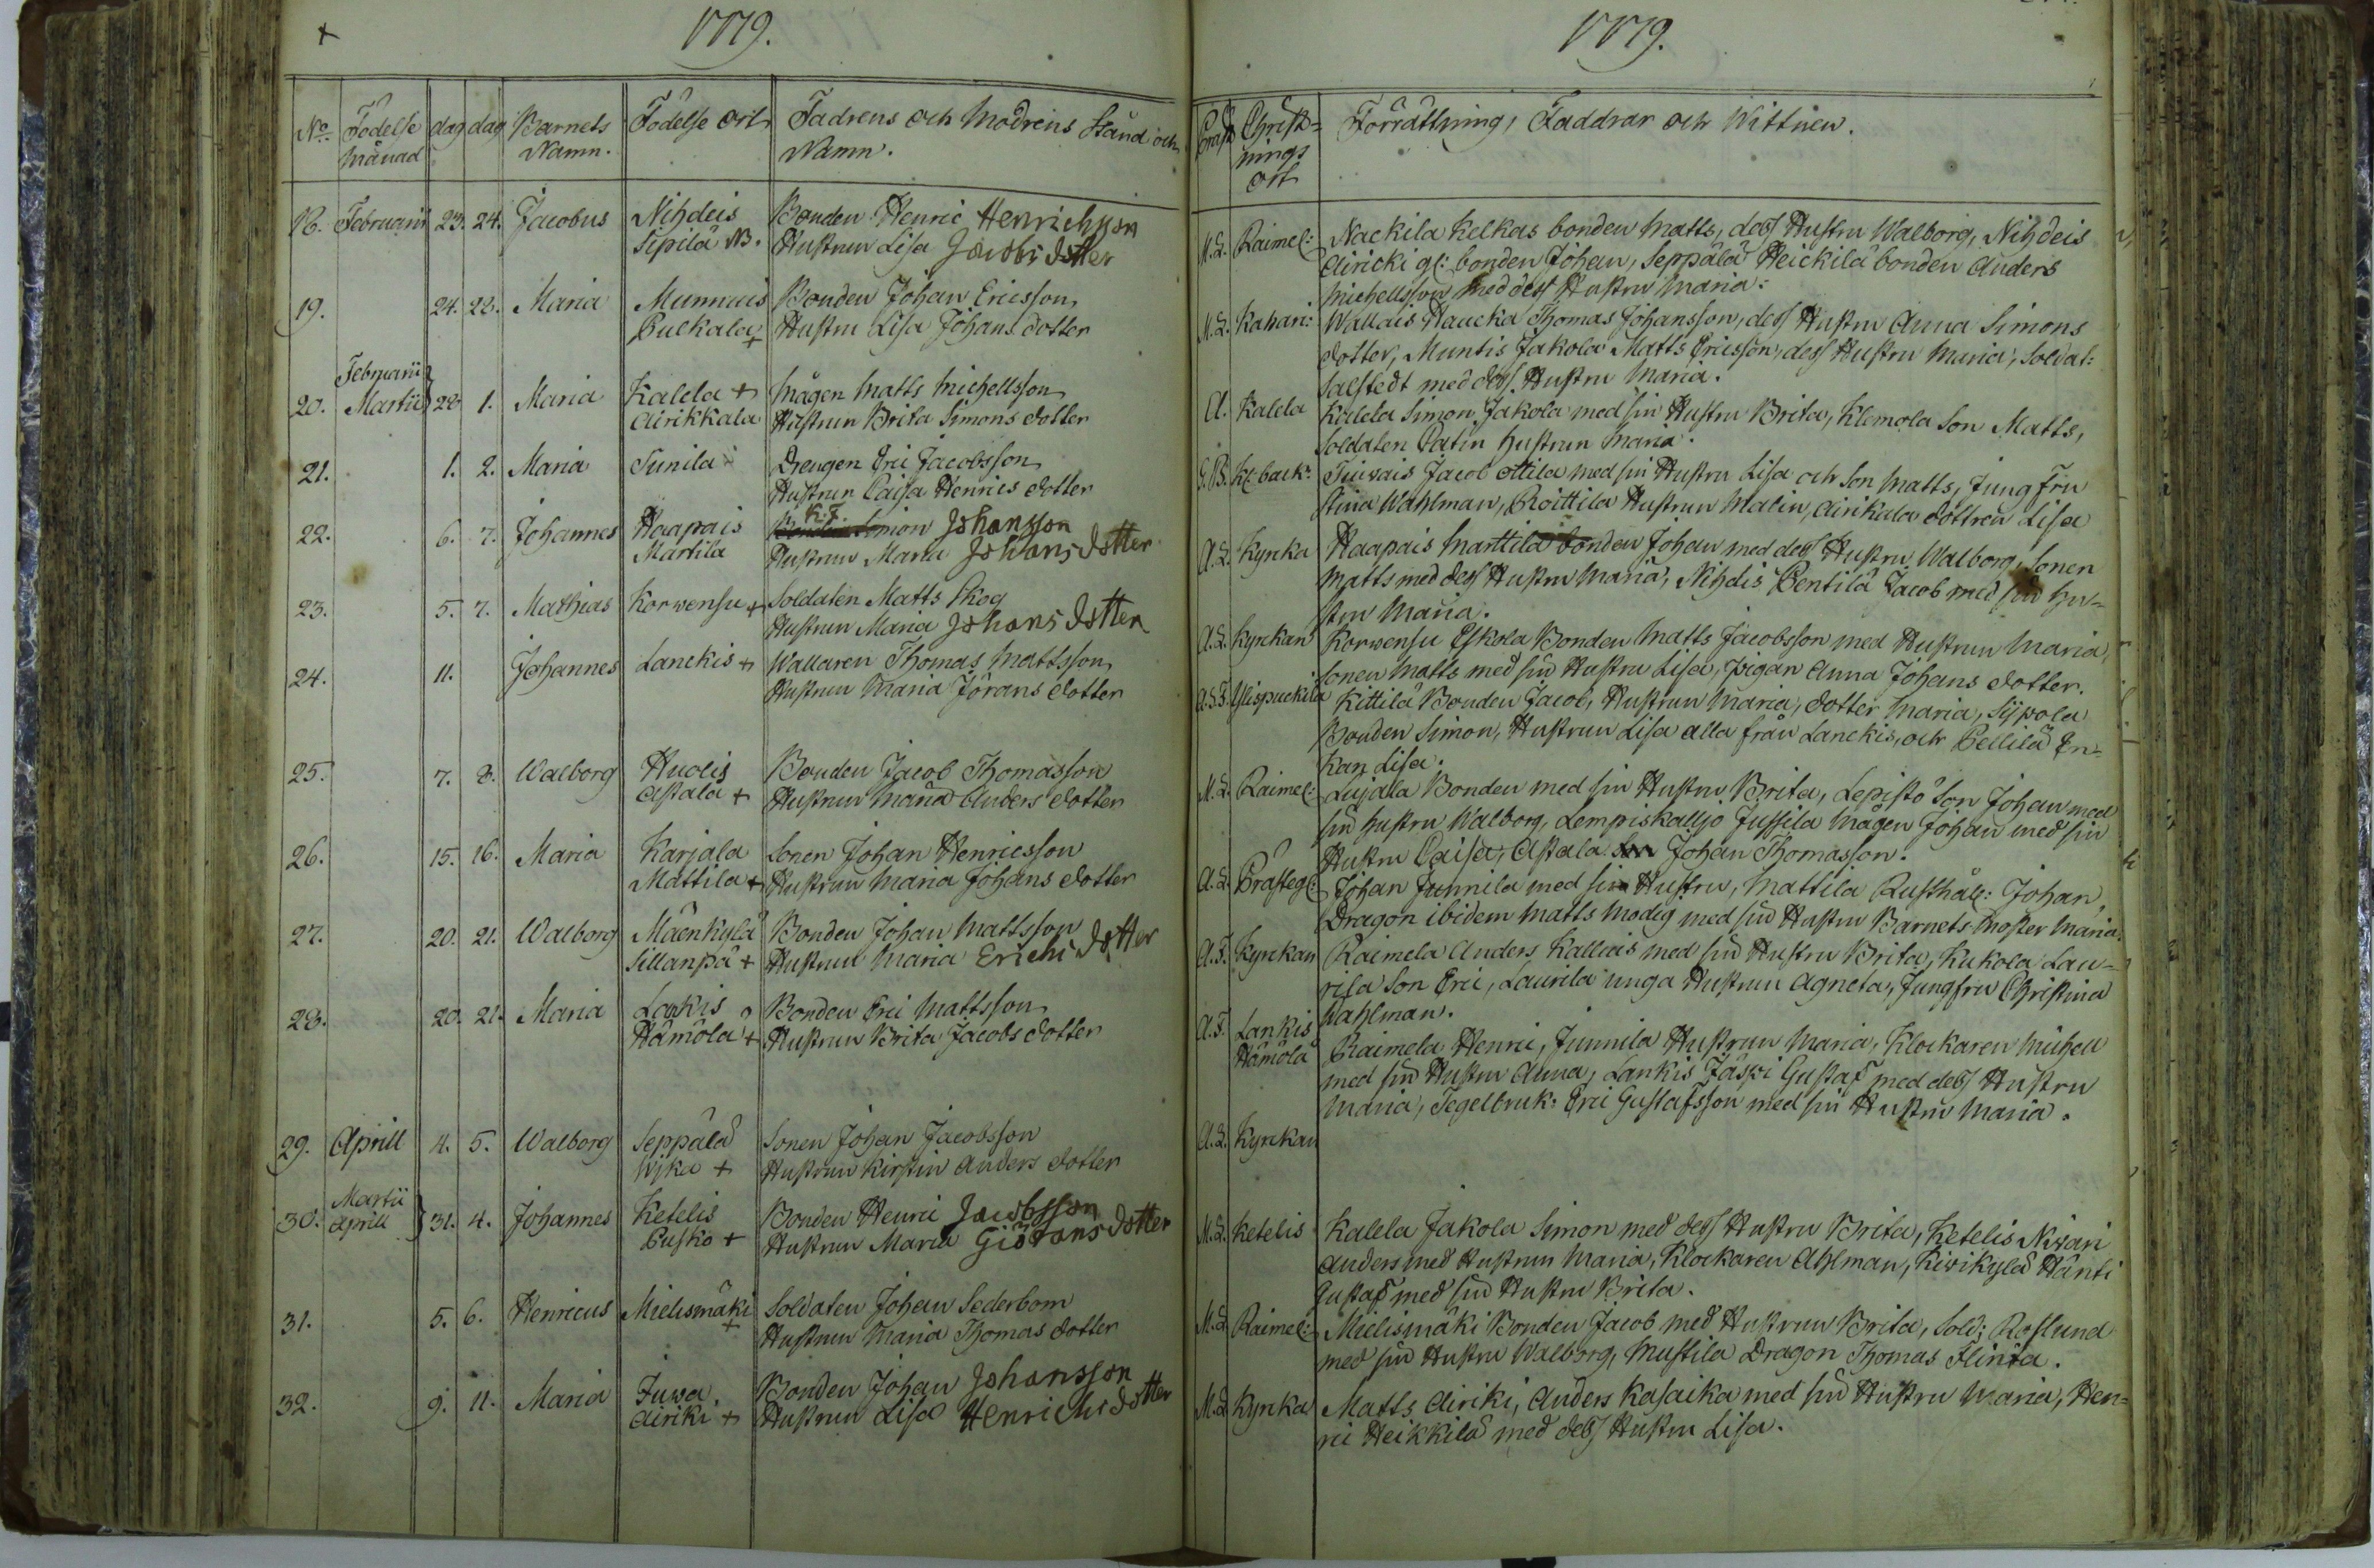 1779.
No Födelse Månad dag dag Barnets Namn. Födelse Ort Fadrens och Modrens Stånd och Namn.
18. Februarii 23. 24. Jacobus Nihdeis Bonden Henric Henrichsson
Sipilä NB. Hustrun Lisa Jacobs dotter
19. 24. 28. Maria Munnuis Bonden Johan Ericsson
Puckala + Hustru Lisa Johans dotter
Februarii
20. Martii 28 1. Maria Kalela + Mågen Matts Michellsson
Airikkala Hustrun Brita Simons dotter
21. 1. 2. Maria Junila Drengen Eric Jacobsson
Hustrun Caisa Henrics dotter
22. 6. 7. Johannes Haapais K.F. Simon Johansson
Martila Hustrun Maria Johans dotter
23. 5. 7. Mathias Korwensu + Soldaten Matts Skog
Hustrun Maria Johans dotter
24. 11. Johannes Lanckis + Wallaren Thomas Mattsson
Hustrun Maria Jörans dotter
25. 7. 8. Walborg Huolis Bonden Jacob Thomasson
Astala + Hustrun Maria Anders dotter
26. 15. 16. Maria Karjala Sonen Johan Henricsson
Mattila + Hustrun Maria Johans dotter
27. 20. 21. Walborg Mäenkylä Bonden Johan Mattsson
Sillanpä + Hustrun Maria Erichs dotter
28. 20. 21. Maria Lankis Bonden Eric Mattsson
Hämölä + Hustrun Brita Jacobs dotter
29. Aprill 4. 5. Walborg Seppälä Sonen Johan Jacobsson
Wjka + Hustrun Kirstin Anders dotter
Martii
30. Aprill 31. 4. Johannes Ketelis Bonden Henric Jacobsson
Pusko + Hustrun Maria Giörans dotter
31. 5. 6. Henricus Mielismäki Soldaten Johan Sederbom
+ Hustrun Maria Thomas dotter
32. 9. 11. Maria Juwa Bonden Johan Johansson
Airiki + Hustrun Lisa Henrichs dotter
1779.
Præst Christnings ort Förrättning, Faddrar och Wittnen.
M.L. Raimel: Nackila Kelkas bonden Matts, dess Hustru Walborg, Nihdeis
Airicki gl: bonden Johan, Seppälä Heickilä bonden Anders
Michellsson med dess Hustru Maria:
M.L. Kahari: Wallais Haucka Thomas Johansson, dess Hustru Anna Simons
dotter, Muntis Jakola Matts Ericsson, dess Hustru Maria, Soldat:
Salstedt med dess Hustru Maria.
A. Kalela Kalela Simon Jakola med sin Hustru Brita, Klemola Son Matts,
Soldaten Patin hustrun Maria.
G.B. Kl: back: Tuiwais Jacob Ottila med sin Hustru Lisa och Son Matts, Jungfru
Stina Wahlman, Roittila Hustrun Malin, Airikala dottren Lisa
A.L. Kyrka Haapais Marttila bonden Johan med dess Hustru Walborg, Sonen
Matts med dess Hustru Maria, Nihdis Pentilä Jacob med sin hu=
stru Maria.
A.L. Kyrckan Korwensu Eskola Bonden Matts Jacobsson med Hustrun Maria,
Sonen Matts med sin Hustru Lisa, pigan Anna Johans dotter.
A.S.F. Ylispuckila Kittilä Bonden Jacob, Hustrun Maria, dotter Maria, Sijpola
Bonden Simon, Hustrun Lisa alla från Lanckis, och Pellilä En=
kan Lisa.
M.L. Raimel: Lujala Bonden med sin Hustru Brita, Lepistö Son Johan med
sin hustru Walborg, Lempiskalljo Jussila Mågen Johan med sin
Hustru Caisa, Astala Johan Thomasson.
A.L. Prästeg: Johan Junnila med sin Hustru, Mattila Rusthål: Johan,
Dragon ibidem Matts Modig med sin Hustru Barnets Moster Maria.
A.F. Kyrckan Raimela Anders Kalluis med sin Hustru Brita, Kukola Lau=
rila Son Eric, Laurila unga Hustrun Agneta, Jungfru Christina
Wahlman.
A.F. Lankis Hämölä Raimela Henric, Junnila Hustrun Maria, Klockaren Michell
med sin Hustru Anna, Lankis Jäspi Gustaf med dess Hustru
Maria, Tegelbruk: Eric Gustafsson med sin Hustru Maria.
A.L. Kyrckan
M.L. Ketelis Kalela Jakola Simon med dess Hustru Brita, Ketelis Niwari
Anders med Hustrun Maria, Klockaren Ahlman, Kiwikylä Hänti
Gustaf med sin Hustru Brita.
M.L. Raimel: Mielismäki Bonden Jacob med Hustrun Brita, Sold: Roslund
med sin Hustru Walborg, Mustila Dragon Thomas Flinta.
M.L. Kyrcka Matts Airiki, Anders Kasaika med sin Hustru Maria, Hen=
ric Heikkilä med dess Hustru Lisa.